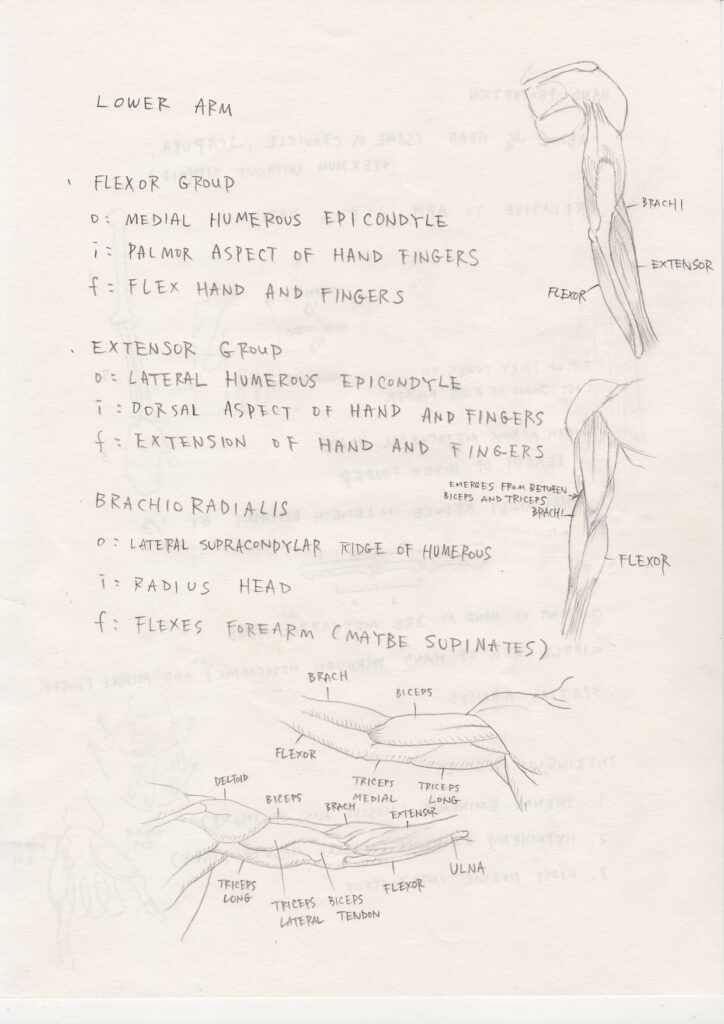 LOWER ARM
. FLEXOR GROUP
o: MEDIAL HUMEROUS EPICONDYLE
i: PALMOR ASPECT OF HAND FINGERS
f: FLEX HAND AND FINGERS
. EXTENSOR GROUP
o: LATERAL HUMEROUS EPICONDYLE
i: DORSAL ASPECT OF HAND AND FINGERS
f: EXTENSION OF HAND AND FINGERS
BRACHIORADIALIS
o: LATERAL SUPRACONDYLAR RIDGE OF HUMEROUS
i: RADIUS HEAD
f: FLEXES FOREARM (MAYBE SUPINATES)
BRACHI
EXTENSOR
FLEXOR
EMERGES FROM BETWEEN
BICEPS AND TRICEPS
BRACHI
FLEXOR
BRACH
BICEPS
FLEXOR
TRICEPS
MEDIAL
TRICEPS
LONG
DELTOID
BICEPS
BRACH
EXTENSOR
TRICEPS
LONG
TRICEPS
LATERAL
BICEPS
TENDON
FLEXOR
ULNA